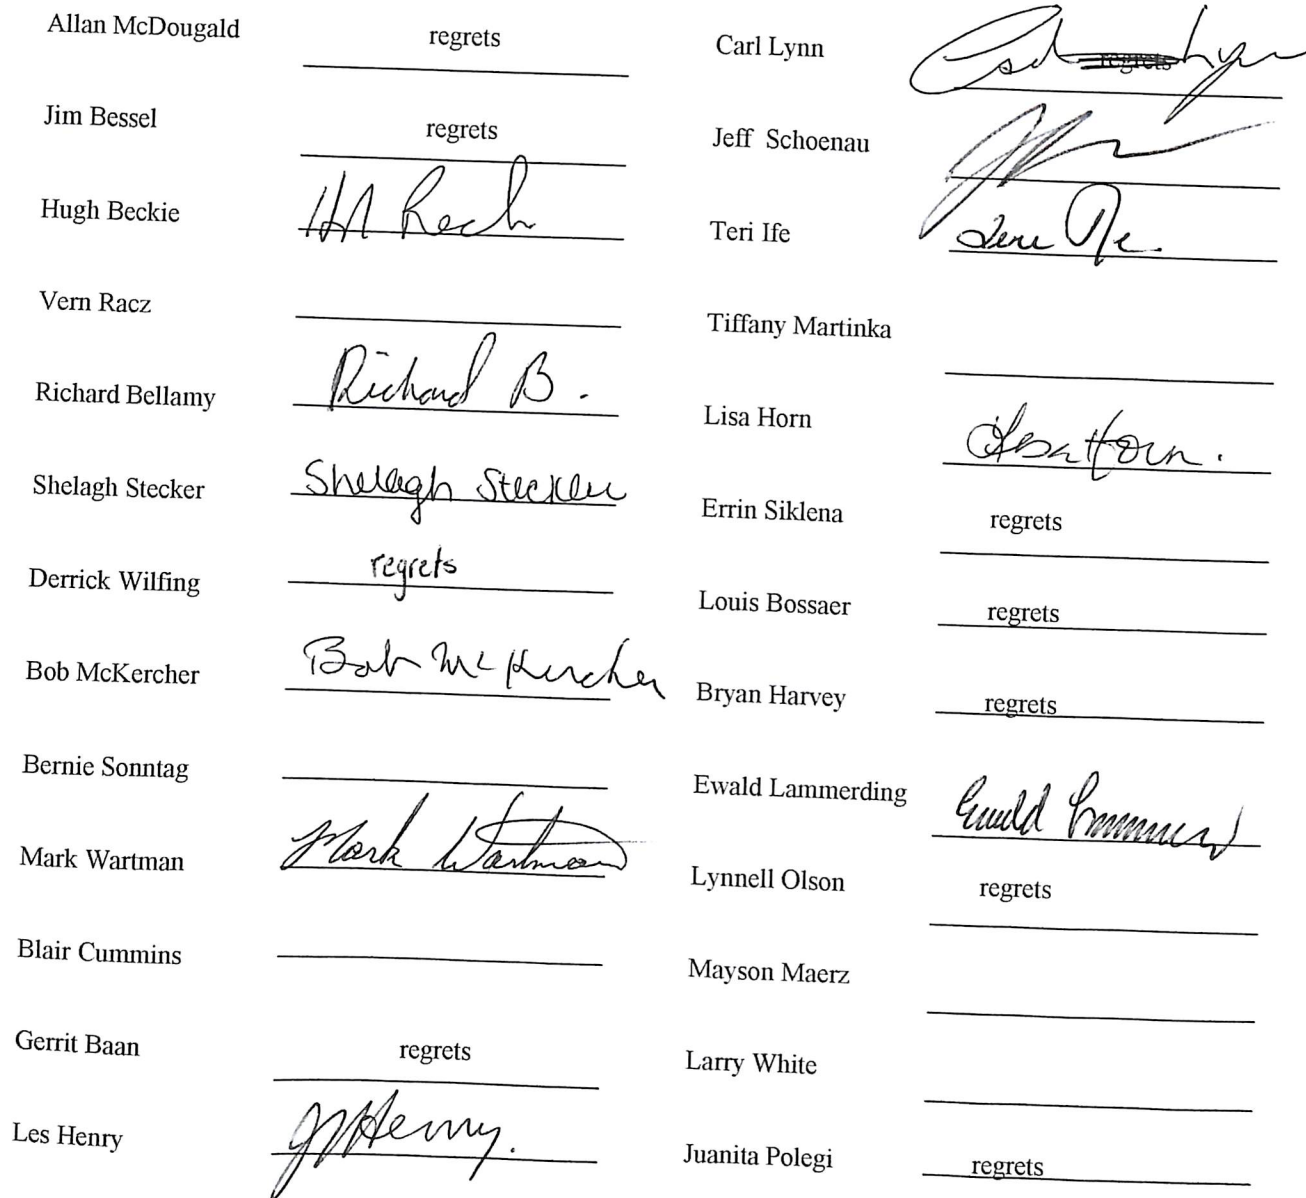 Allan McDougald regrets
Jim Bessel regrets
Hugh Beckie
Vern Racz
Richard Bellamy Richard B.
Shelagh Stecker Shelagh Stecker
Derrick Wilfing regrets
Bob McKercher Bob McKercher
Bernie Sonntag
Mark Wartman Mark Wartman
Blair Cummins
Gerrit Baan regrets
Les Henry JL Henry.
Carl Lynn Carl regrets Lynn
Jeff Schoenau
Teri Ife Teri Ife.
Tiffany Martinka
Lisa Horn Lisa Horn.
Errin Siklena regrets
Louis Bossaer regrets
Bryan Harvey regrets
Ewald Lammerding Ewald
Lynnell Olson regrets
Mayson Maerz
Larry White
Juanita Polegi regrets